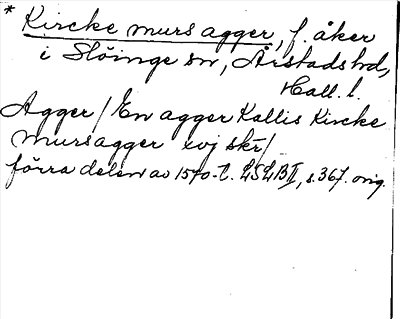 * Kircke murs agger, f. åker
i Slöinge sn, Årstads hd,
Hall. l.
Agger / En agger Kallis Kircke
mursagger xvj skr /
förra delen av 1570-t. LSLB II, s. 367. orig.